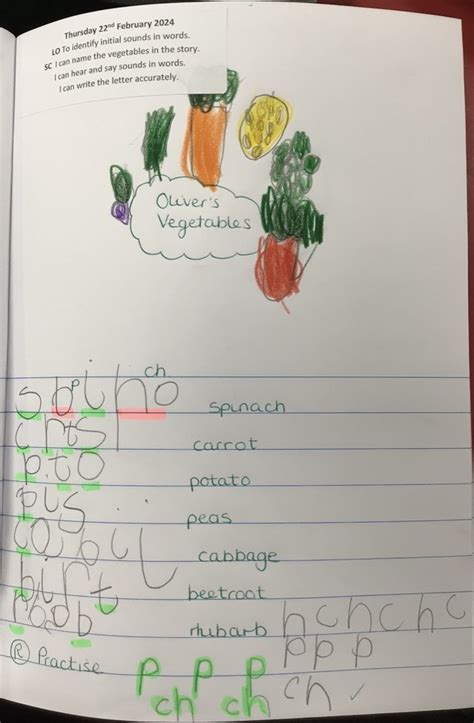 Thursday 22nd February 2024
LO To identify initial sounds in words.
SC I can name the vegetables in the story.
I can hear and say sounds in words.
I can write the letter accurately.
Oliver's
Vegetables
ch
p
spinach
carrot
p.t o potato
pus peas
cabbage
birt beetroot
rhubarb hchchc
ⓡ Practise p p p
p p p
ch ch ch ✓